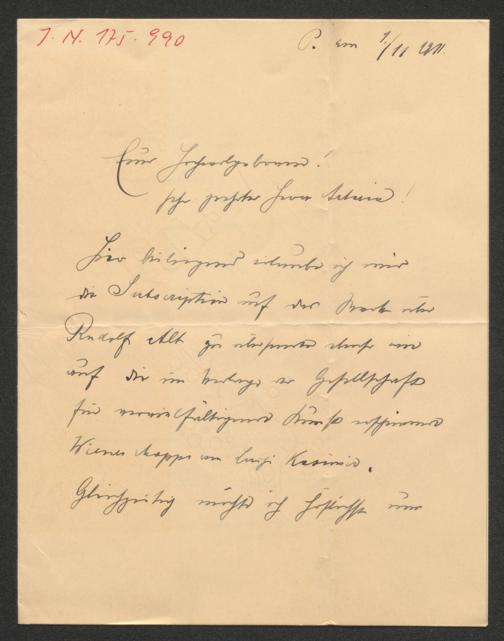 J. N. 175.990
P. am 9/11 1911.
Euer Hochwolgeboren!
sehr geehrter Herr Artaria!
Hier beiliegend erlaube ich mir
die Subscription auf das Werk über
Rudolf Alt zu übersenden ebenso wie
auf die im Verlage der Gesellschaft
für vervielfältigende Kunst erschienene
Wiener Mappe von Luigi Kasimir.
Gleichzeitig möchte ich höflichst um